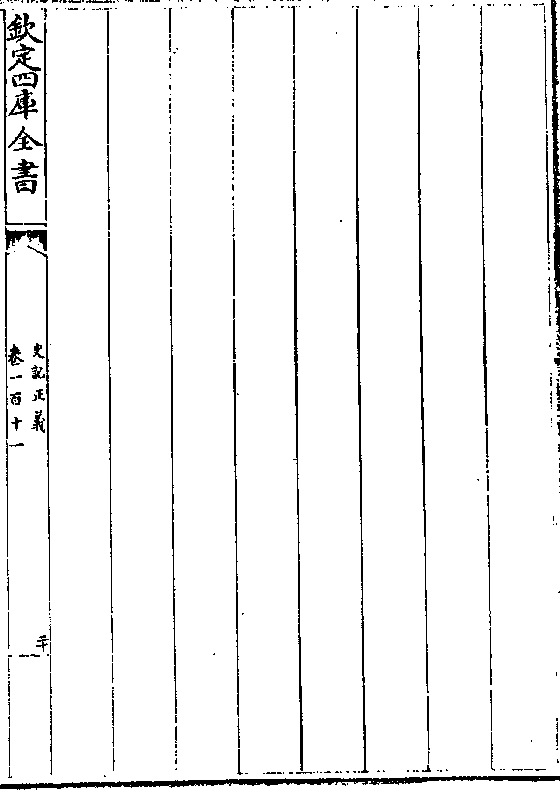 欽定四庫全書
史記正義
卷一百十一
二十